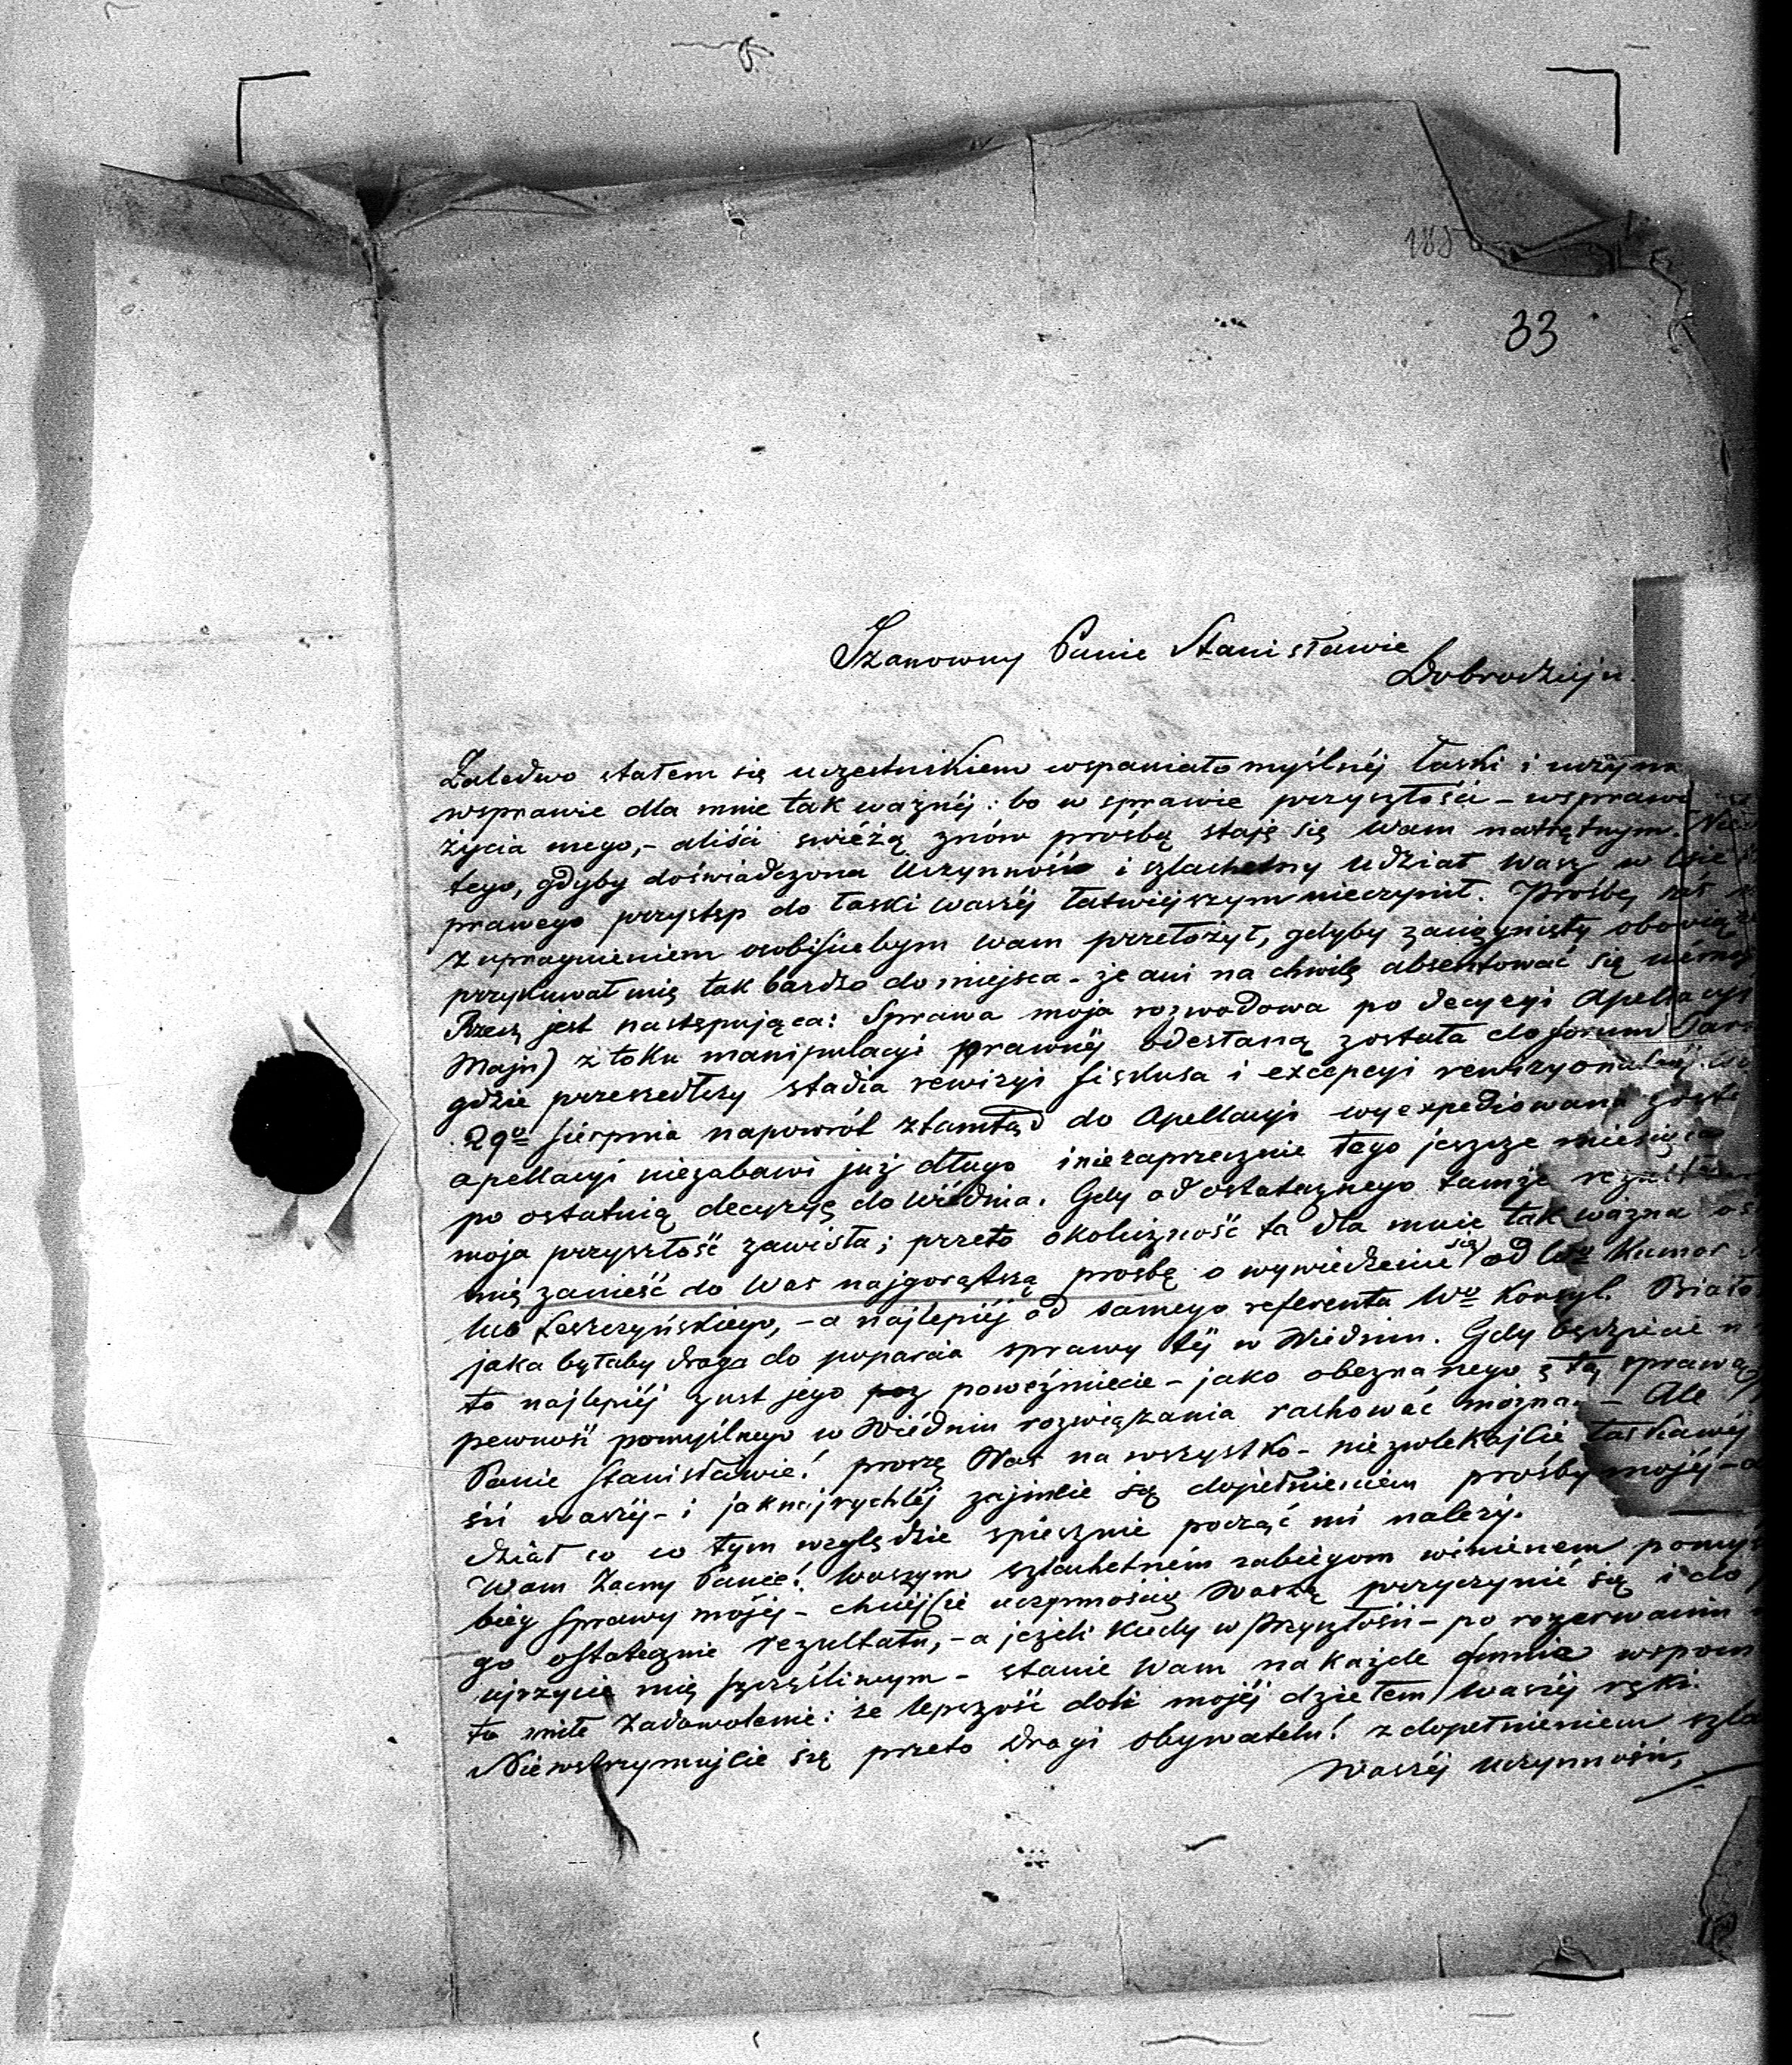 185
33
Szanowny Panie Stanisławie
Dobrodzieju.
Zaledwo stałem się uczestnikiem wspaniałomyślnéj łaski i
wsprawie dla mnie tak ważnéj: bo w sprawie przyszłości – wsprawie
życia mego, – aliści swiéżą znów prosbą staję się Wam natrętnym.
tego, gdyby doświadczona Uczynność i szlachetny Udział Wasz w
prawego przystęp do łaski Waszéj łatwiéjszym nieczynił. Prośbę
z upragnieniem osobiściebym Wam przełożył, gdyby zaciągnięty
przykuwał mię tak bardzo do miejsca – że ani na chwilę absentować się
Rzecz jest następująca: Sprawa moja rozwodowa po decyzyi
Maju) z toku manipulacyi prawnéj odesłaną została do forum
gdzie przeszedłszy stadia rewizyi fiskusa i excepcyi
29go Sierpnia napowrót ztamtąd do Apellacyi wyexpediowana
apellacyi niezabawi już długo i niezaprzecznie tego jeszcze
po ostatnią decyzyę do Wiédnia. Gdy od ostatecznego tamże
moja przyszłość zawisła; przeto okoliczność ta dla mnie tak ważna
mię zanieść do Was najgorętszą prosbę o wywiedzenie się od Wo
lub Leszczyńskiego, – a najlepiéj od samego referenta Wo Konsyl.
jaka byłaby droga do poparcia sprawy téj w Wiedniu. Gdy będziecie
to najlepiéj z ust jego poweźmiecie – jako obeznanego z tą sprawą
pewność pomyślnego w Wiédniu rozwiązania rachować można. – Ale
Panie Stanisławie! proszę Was na wszystko – niezwlekajcie łaskawéj
ści waszéj – i jaknajrychléj zajmcie się dopełnieniem prośby mojéj –
dział co w tym względzie spiesznie począć mi należy.
Wam Zacny Panie! Waszym szlachetném zabiegom winienem
bieg sprawy mojéj – chciejcie uczynnością Waszą przyczynić się i do
go ostatecznie rezultatu, – a jeżeli kiedy w przyszłości – po rozerwaniu
ujrzycie mię szczęśliwym – stanie Wam na każde
to miłe zadowolenie: że lepszość doli mojéj dziełem Waszéj ręki.
Niewstrzymujcie się przeto drogi obywatelu! z dopełnieniem
Waszéj Uczynności,